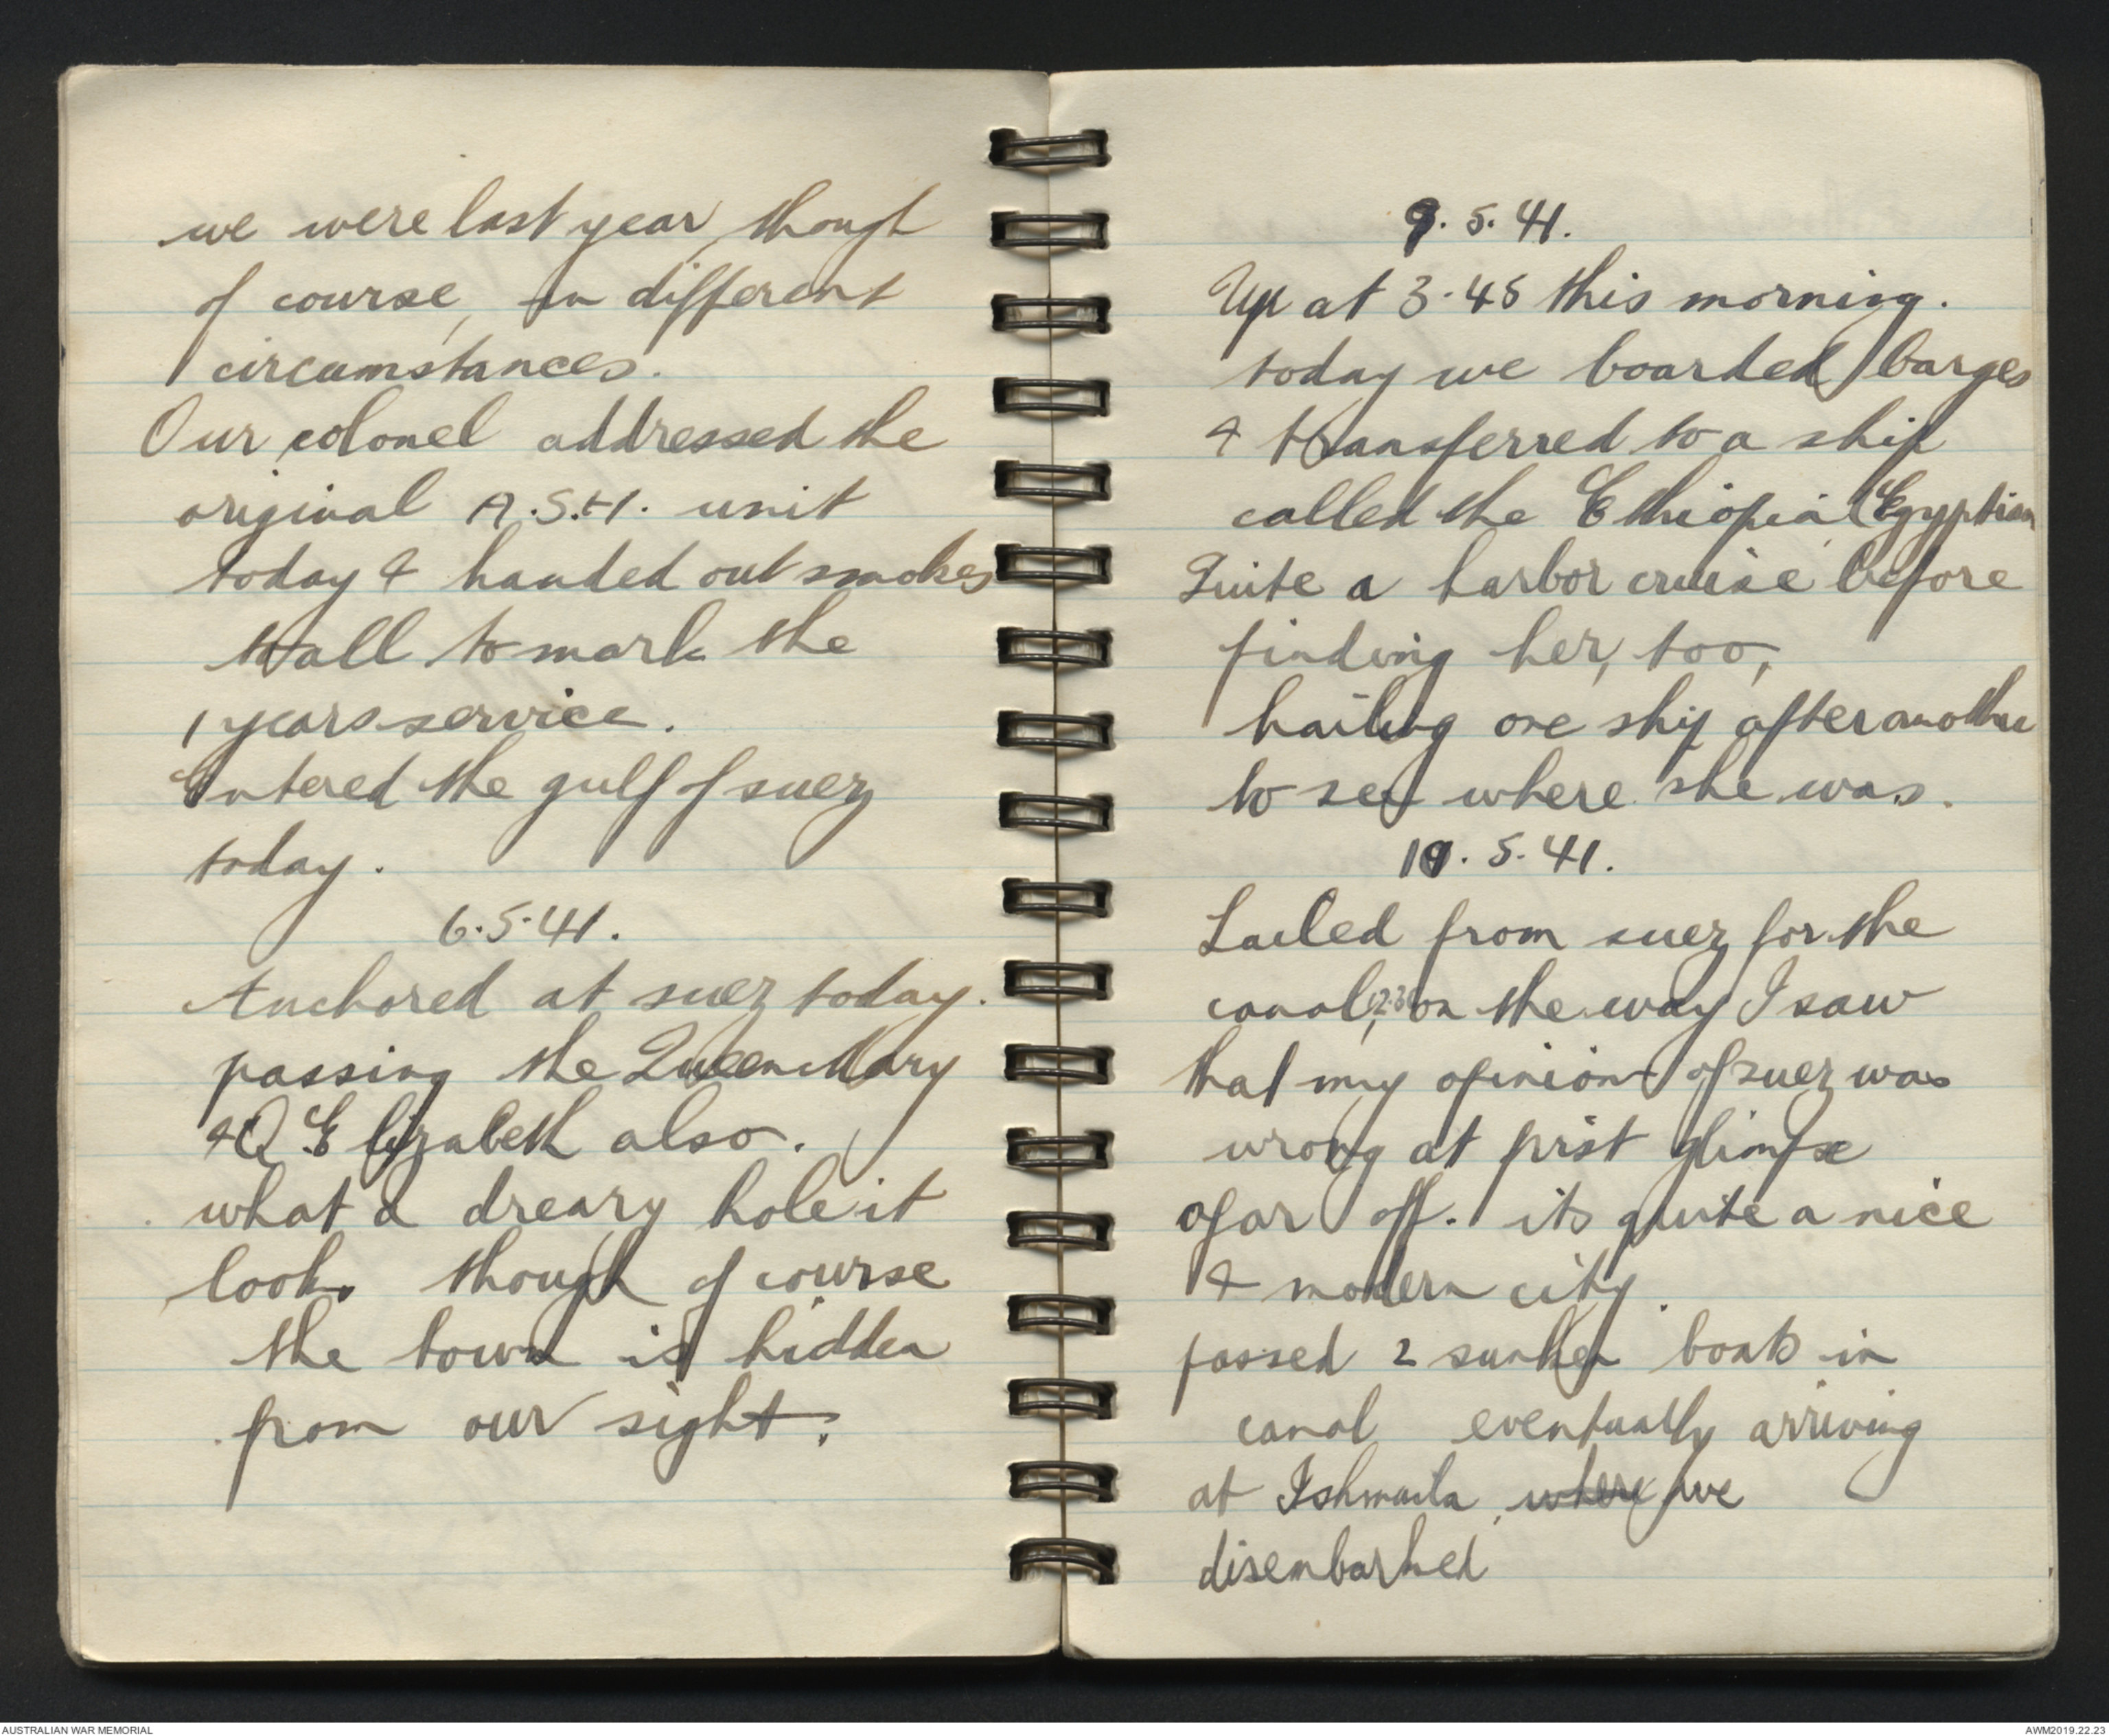 we were last year, though
of course, in different
circumstances.
Our colonel addressed the
original A.S.H. unit
today & handed out smokes
to all to mark the
1 years service.
Entered the gulf of suez
today.
6.5.41.
Anchored at suez today.
passing the Queen Mary
& Q. Elizabeth also.
what a dreary hole it
looks though of course
the town is hidden
from our sight.
9.5.41.
Up at 3.45 this morning.
today we boarded barges
& transferred to a ship
called the Ethiopia (Egyptian
Quite a harbor cruise before
finding her, too,
hailing one ship after another
to see where she was.
10.5.41.
Sailed from suez for the
canal, on the way I saw
that my opinion of suez was
wrong at first glimpse
afar off. its quite a nice
& modern city.
passed 2 sunken boats in
canal eventually arriving
at Ishmaila, where we
disembarked
AUSTRALIAN WAR MEMORIAL
AWM2019.22.23